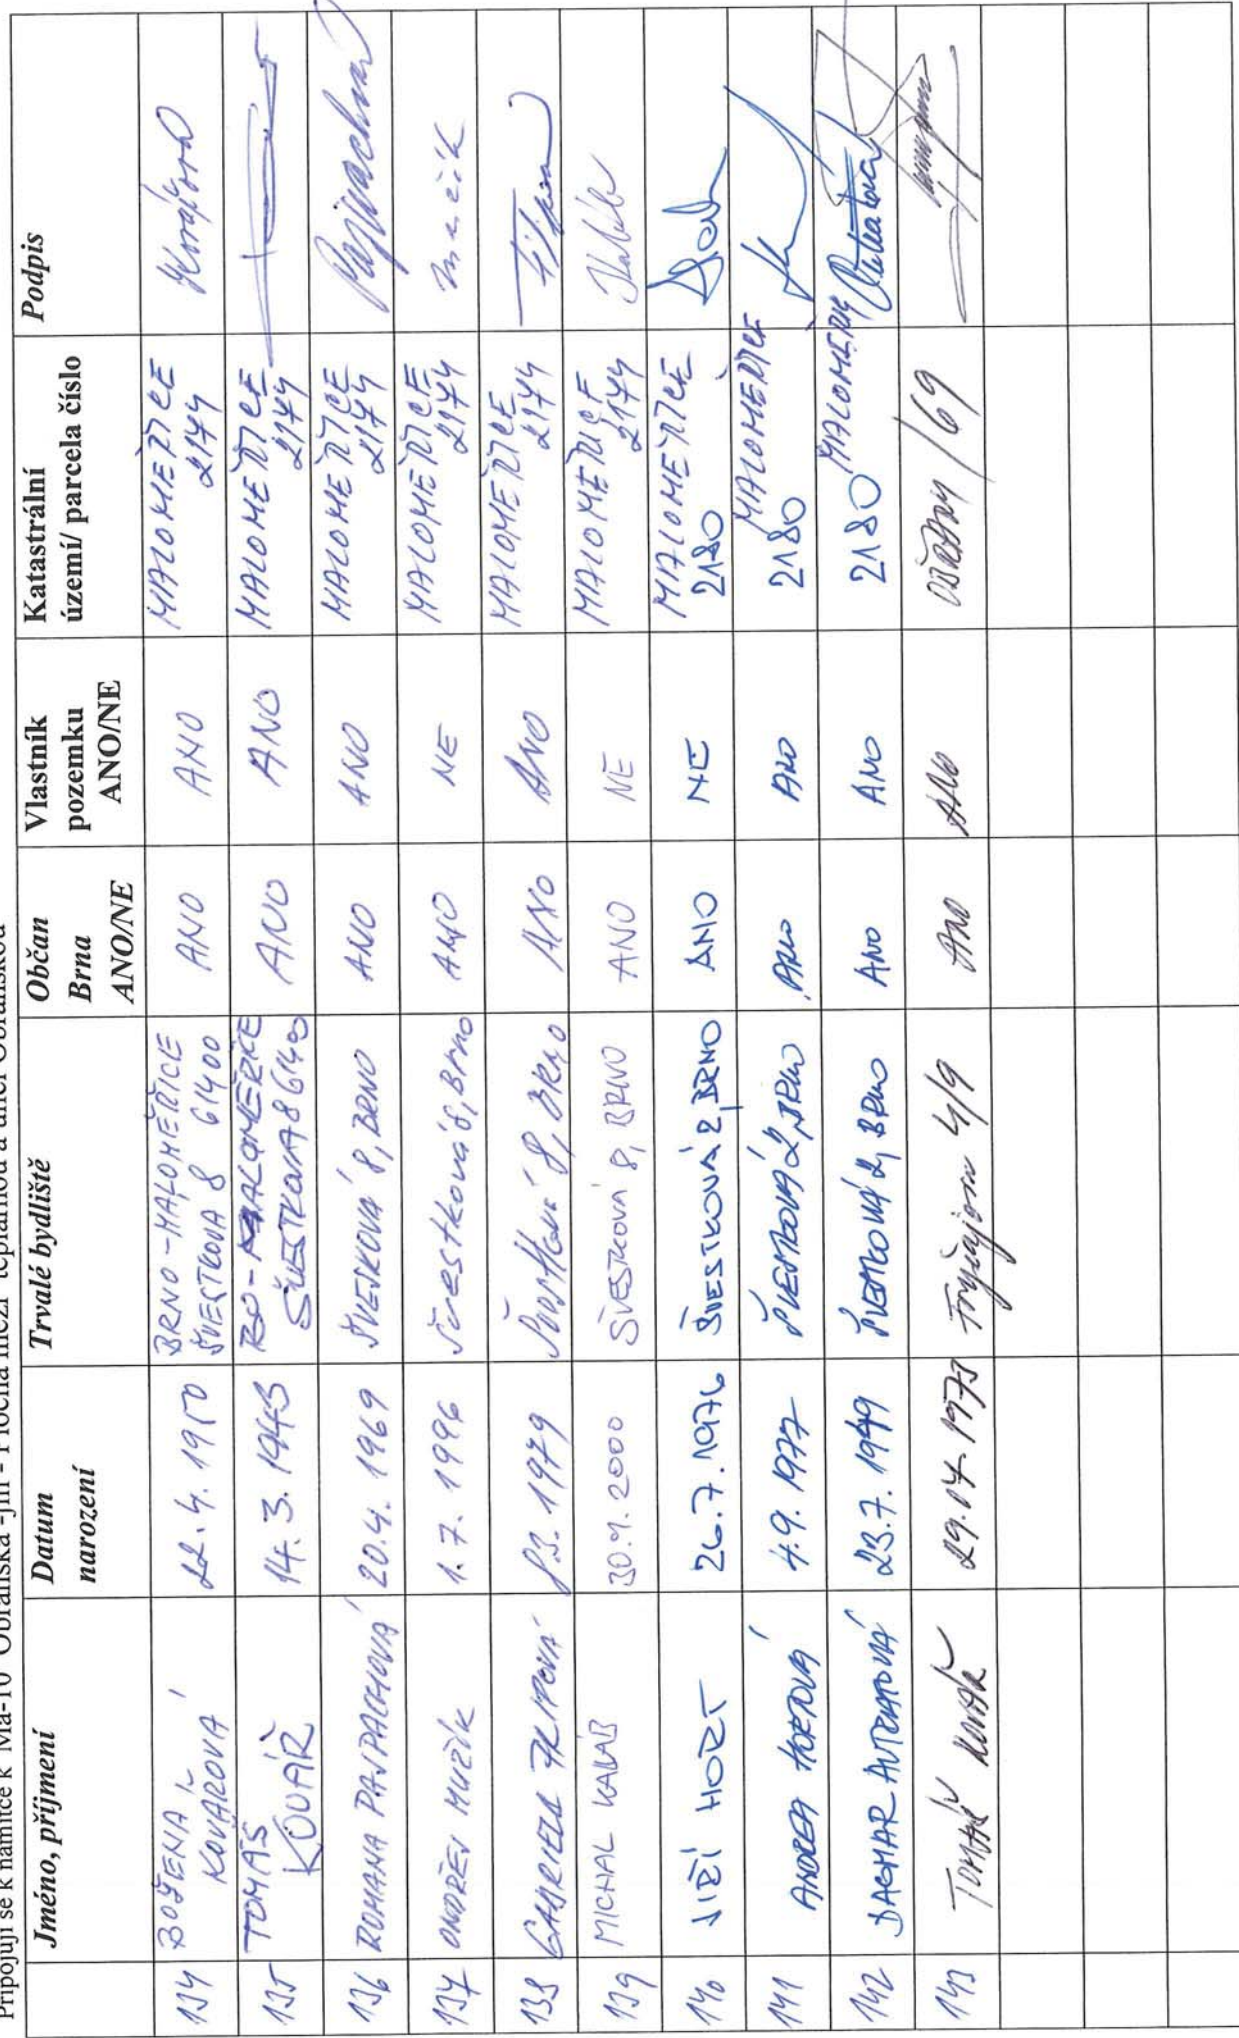 Připojuji se k námitce k Ma-10 Obřanská -jih - Plocha mezi teplárnou a ulicí Obřanskou
Jméno, příjmení
Datum
narození
Trvalé bydliště
Občan
Brna
ANO/NE
Vlastník
pozemku
ANO/NE
Katastrální
území/ parcela číslo
Podpis
134 BOŽENA KOVÁŘOVÁ 22.4. 1950 BRNO - MALOMĚŘICE ŠVESTKOVÁ 8 61400 ANO ANO MALOMĚŘICE 2174
135 TOMÁŠ KOVÁŘ 14.3.1943 MALOMĚŘICE ŠVESTKOVÁ 8 61400 ANO ANO MALOMĚŘICE 2174
136 ROMANA PAJPACHOVÁ 20.4.1969 ŠVESKOVÁ 8, BRNO ANO ANO MALOMĚŘICE 2174
137 ONDŘEJ MUZIK 1.7.1996 Švestková 8, Brno ANO NE MALOMĚŘICE 2174
138 GABRIELA FILIPOVÁ 1979 8, BRNO ANO ANO MALOMĚŘICE 2174
139 MICHAL KALÁB 30.9.2000 ŠVESTKOVÁ 8, BRNO ANO NE MALOMĚŘICE 2174
140 JIŘÍ HORT 26.7.1976 ŠVESTKOVÁ 2, BRNO ANO NE MALOMĚŘICE 2180
141 ANDREA HORTOVÁ 4.9.1977 ŠVESTKOVÁ 2, BRNO ANO ANO MALOMĚŘICE 2180
142 DAGMAR 23.7.1949 ŠVESTKOVÁ 2, BRNO ANO ANO MALOMĚŘICE 2180
143 TOMÁŠ 4/9 ANO ANO /69